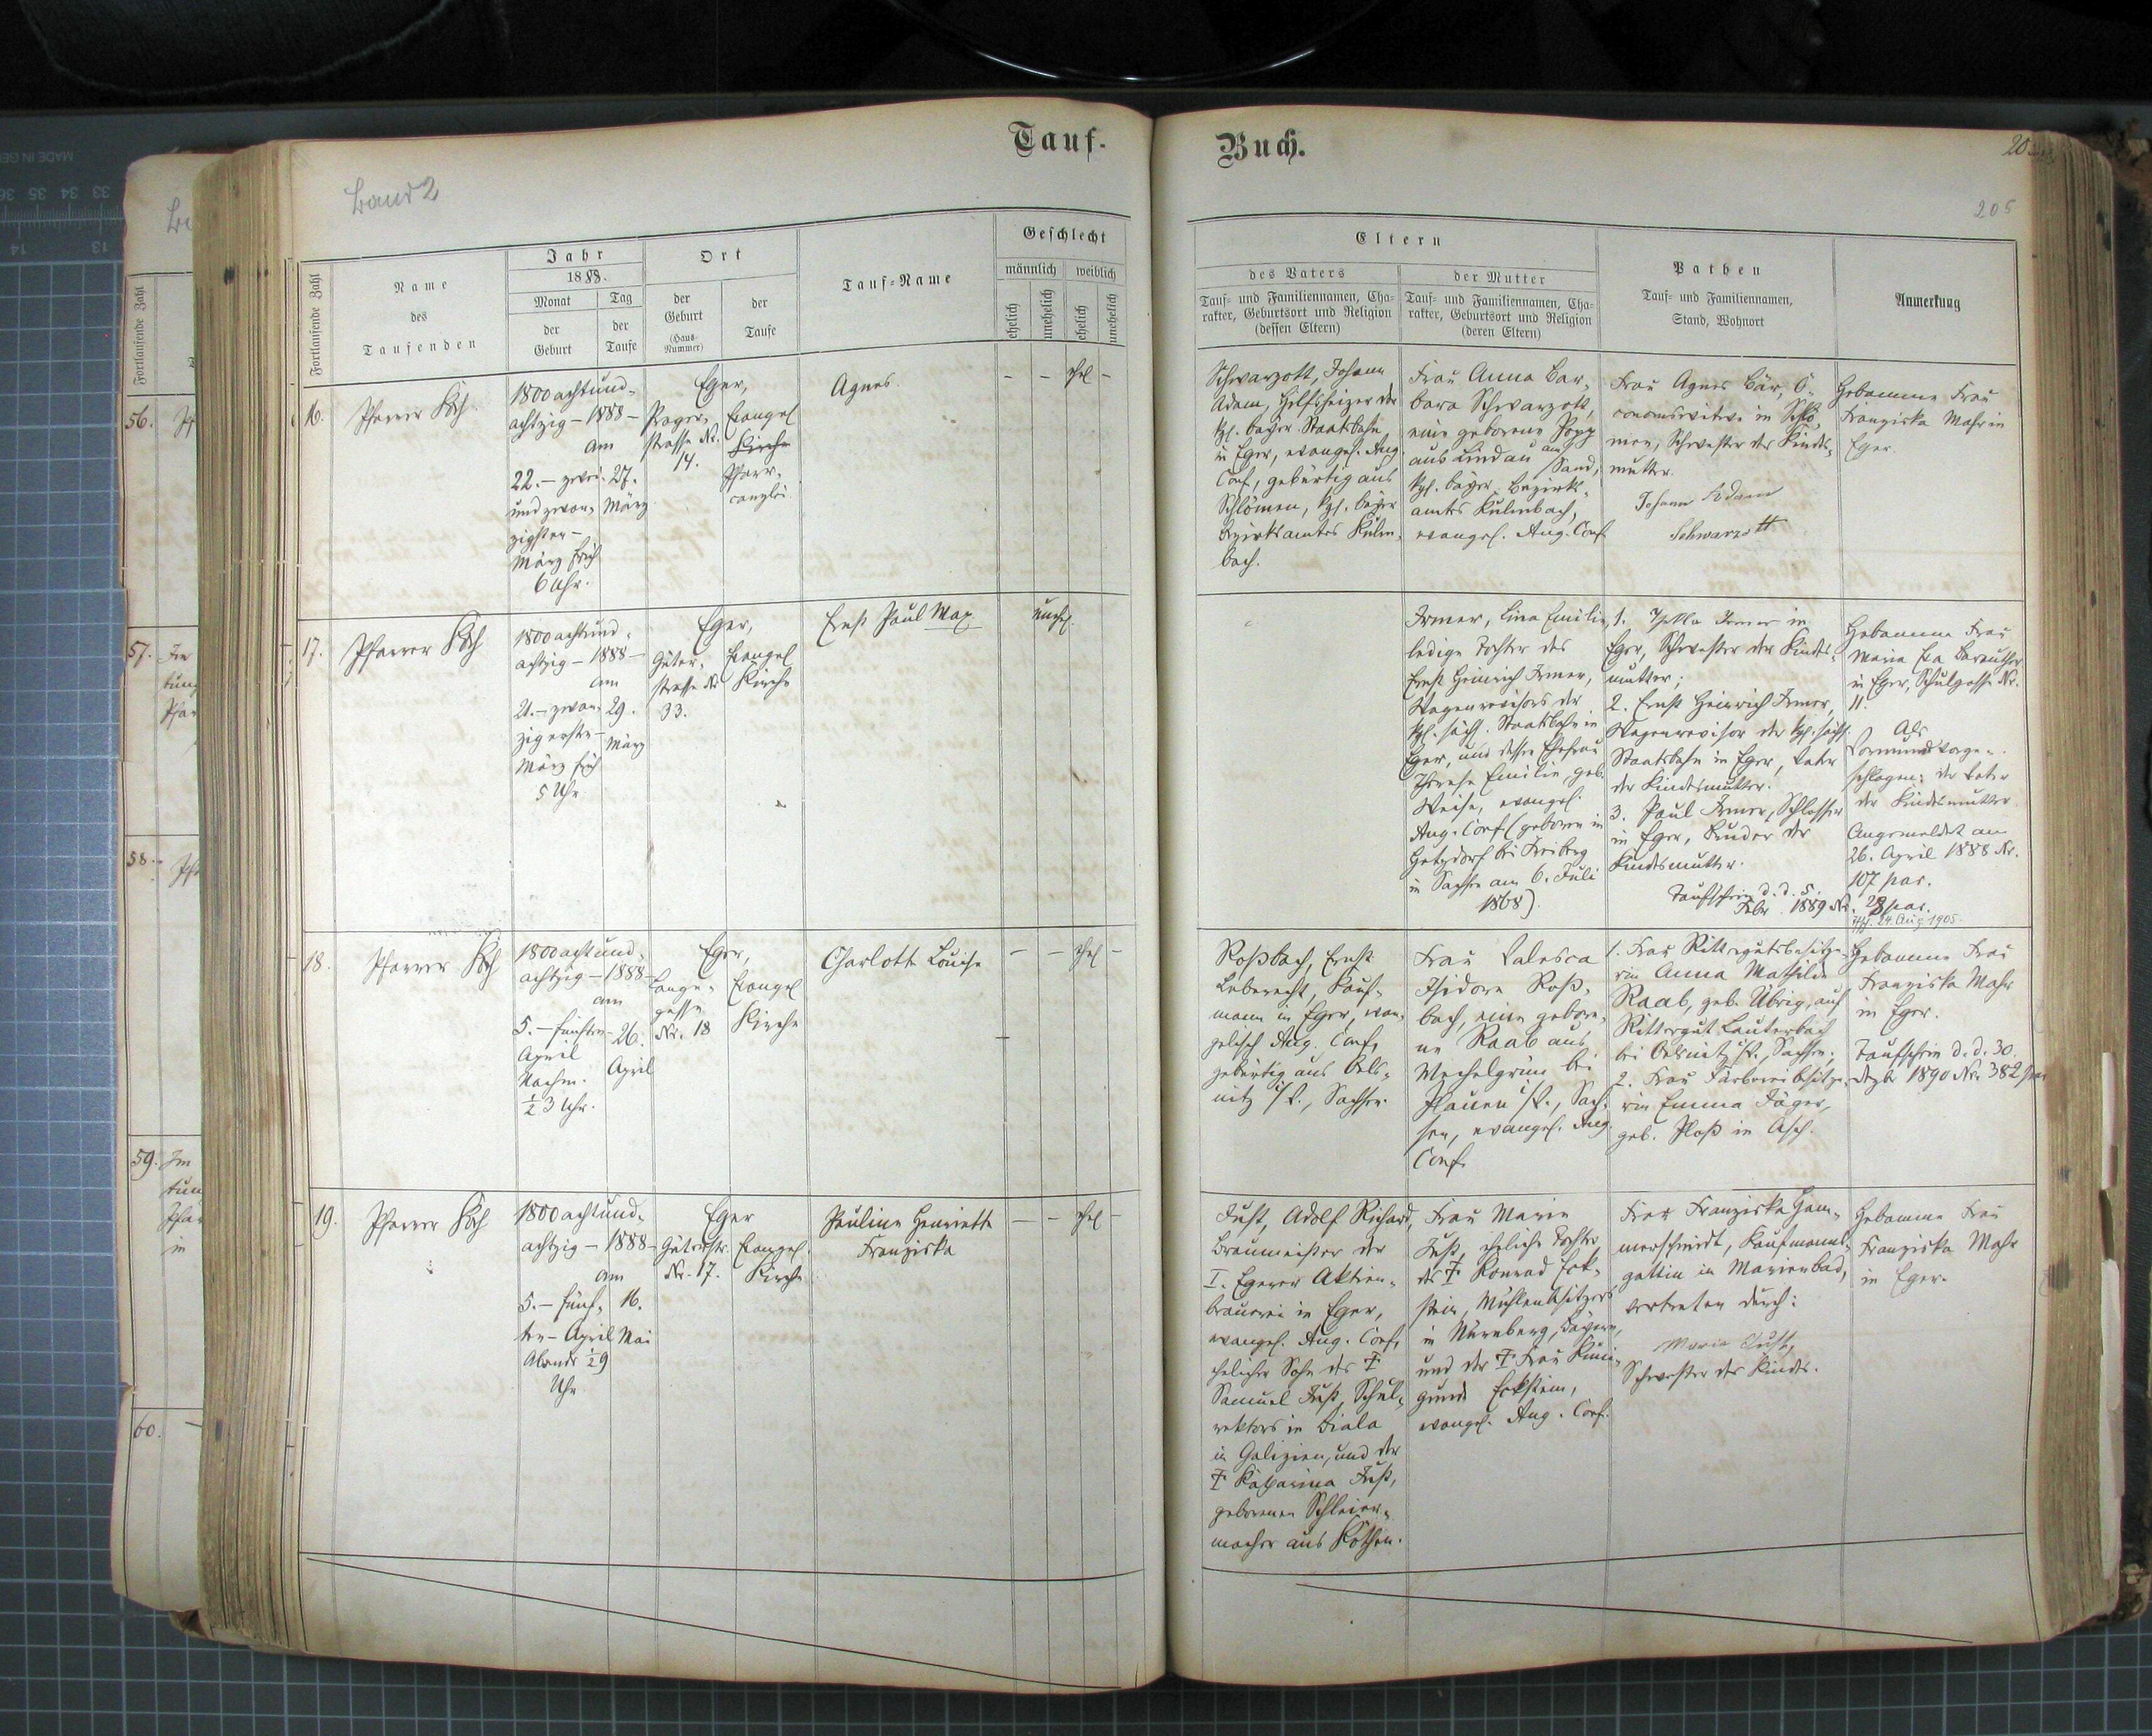 Tauf-
Buch.
Band 2
205
Fortlaufende Zahl
Name
des
Taufenden
Jahr
1888.
Monat
der
Geburt
Tag
der
Taufe
Ort
der
Geburt
(Haus-
Nummer)
der
Taufe
Tauf-Name
Geschlecht
männlich
weiblich
ehelich
unehelich
ehelich
unehelich
Eltern
des Vaters
Tauf- und Familiennamen, Cha-
rakter, Geburtsort und Religion
(dessen Eltern)
der Mutter
Tauf- und Familiennamen, Cha-
rakter, Geburtsort und Religion
(deren Eltern)
Pathen
Tauf- und Familiennamen,
Stand, Wohnort
Anmerkung
16.
Pfarrer Koch
1800 achtund-
achtzig – 1888 –
am
22. – zwei-
undzwan-
zigsten –
März früh
6 Uhr.
27.
März
Eger,
Prager-
strasse Nr.
14.
Evangel
Kirche
Pfarr-
canzlei
Agnes.
– – ehel –
Schwarzott, Johann
Adam, Hilfsheizer der
kgl. bayer. Staatsbahn
in Eger, evangel. Aug.
Conf, gebürtig aus
Schlömen, kgl. bayer
Bezirksamtes Kulm-
bach.
Frau Anna Bar-
bara Schwarzott,
eine geborene Popp
aus Lindau am
Sand,
kgl. bayer. Bezirks-
amtes Kulmbach,
evangel. Aug. Conf.
Frau Agnes Bär, Ö-
conomswitwe in Schlö-
men, Schwester der Kindes-
mutter.
Johann Adam
Schwarzott
Hebamme Frau
Franziska Mahr in
Eger.
17.
Pfarrer Koch
1800 achtund-
achtzig – 1888 –
am
21. – zwan-
zigerste –
März früh
5 Uhr
29.
März
Eger,
Güter-
strasse Nr
33.
Evangel
Kirche
Ernst Paul Max
unehel.
Irmer, Lina Emilie,
ledige Tochter des
Ernst Heinrich Irmer,
Wagenrevisors der
kgl. sächs. Staatsbahn in
Eger, und dessen Ehefrau
Therese Emilie, geb.
Weise, evangel.
Aug. Conf (geboren in
Hetzdorf bei Freiberg
in Sachsen am 6. Juli
1868)
1. Thekla Irmer in
Eger, Schwester der Kindes-
mutter;
2. Ernst Heinrich Irmer,
Wagenrevisor der kgl. sächs.
Staatsbahn in Eger, Vater
der Kindesmutter.
3. Paul Irmer, Schlosser
in Eger, Bruder der
Kindesmutter.
Taufschein d. d. 5.
Febr. 1889 Nr. 28 par.
Hebamme Frau
Maria Eva Bareuther
in Eger, Schulgasse Nr.
11.
Als
Vormund vorge-
schlagen: der Vater
der Kindesmutter
Angemeldet am
26. April 1888 Nr.
107 par.
24. Aug 1905.
18.
Pfarrer Koch
1800 achtund-
achtzig – 1888 –
am
5. – fünften –
April
Nachm.
½ 3 Uhr.
26.
April
Eger,
Lange-
gasse
Nr. 18
Evangel
Kirche
Charlotte Louise
– – ehel –
Roßbach, Ernst
Leberecht, Kauf-
mann in Eger, evan-
gelisch Aug. Conf,
gebürtig aus Oels-
nitz i/V., Sachsen.
Frau Valesca
Isidore Roß-
bach, eine gebore-
ne Raab aus
Mechelgrün bei
Plauen i/V., Sach-
sen, evangel. Aug.
Conf.
1. Frau Rittergutsbesitze-
rin Anna Mathilde
Raab, geb. Übrig, auf
Rittergut Lauterbach
bei Oelsnitz i/V., Sachsen;
2. Frau Färbereibesitze-
rin Emma Jäger,
geb. Ploß in Asch.
Hebamme Frau
Franziska Mahr
in Eger.
Taufschein d. d. 30.
Dezbr 1890 Nr. 382 par
19.
Pfarrer Koch
1800 achtund-
achtzig – 1888 –
am
5. – fünf-
ten – April
Abends ½ 9
Uhr
16.
Mai
Eger
Güterstr.
Nr. 17.
Evangel.
Kirche
Pauline Henriette
Franziska
– – ehel –
Just, Adolf Richard,
Braumeister der
I. Egerer Aktien-
brauerei in Eger,
evangel. Aug. Conf,
ehelicher Sohn des †
Samuel Just, Schul-
rektors in Biala
in Galizien, und der
† Katharina Just,
geborenen Schleier-
macher aus Köthen.
Frau Marie
Just, eheliche Tochter
des † Konrad Eck-
stein, Mühlenbesitzers
in Nürnberg, Bayern,
und der † Frau Kuni-
gunde Eckstein,
evangel. Aug. Conf.
Frau Franziska Ham-
merschmidt, Kaufmanns-
gattin in Marienbad,
vertreten durch:
Marie Just,
Schwester des Kindes.
Hebamme Frau
Franziska Mahr
in Eger.
56.
57.
58.
59.
60.